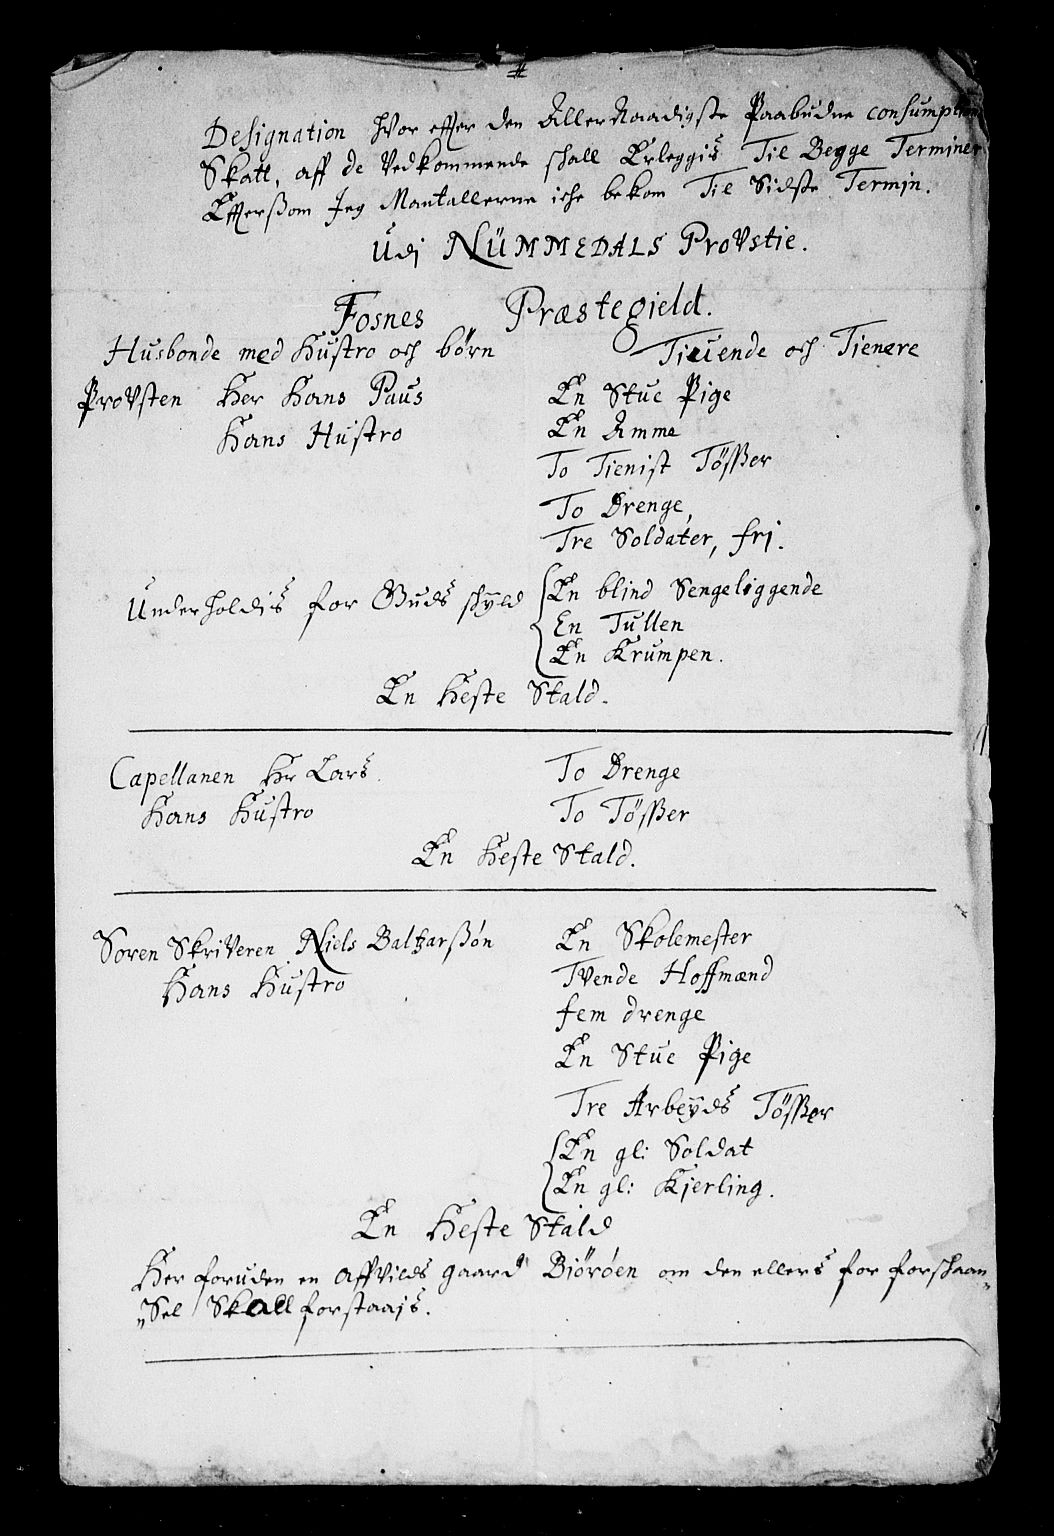 Designation hvor effter den AllerNaadigste Paabudne consumption
Skatt, aff de Vedkommende schall Erleggis Til Begge Terminer
Effterßom Jeg Mantallerne iche bekom Til Sidste Termin.
Udj NÜMMEDALS ProVstie.
Fosnes Præstegield.
Husbonde med Hustro och børn
Tieuende och Tienere
ProVsten Her Hans Paus
En Stue Pige
Hans Hustro
En Amme
To Tienist Tösßer
To Drenge,
Tre Soldater, fri.
Underholdis for Guds schyld
En blind Sengeliggende
En Tullen
En Krumpen.
En Heste Stald.
Capellanen Hr Lars.
To Drenge
Hans Hustro
To Tösßer
En Heste Stald.
Soren SkriVeren Niels Baltzarßøn
En Skolemester
Hans Hustro
TVende Hoffmænd
fem drenge
En Stue Pige
Tre Arbeyds Tösßer
En gl: Soldat
En gl: Kjerling.
En Heste Stald
Her foruden en Affvilds gaard Biörøen om den ellers for forschaan„
„Sel Skall forstaajs.